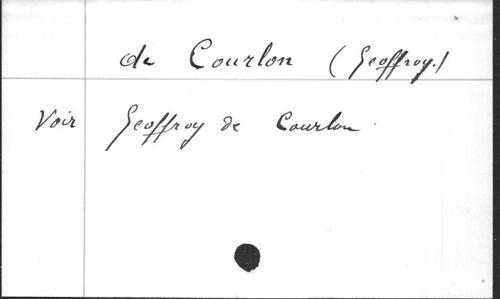 de Courlon (Geoffroy.)
Voir Geoffroy de Courlon